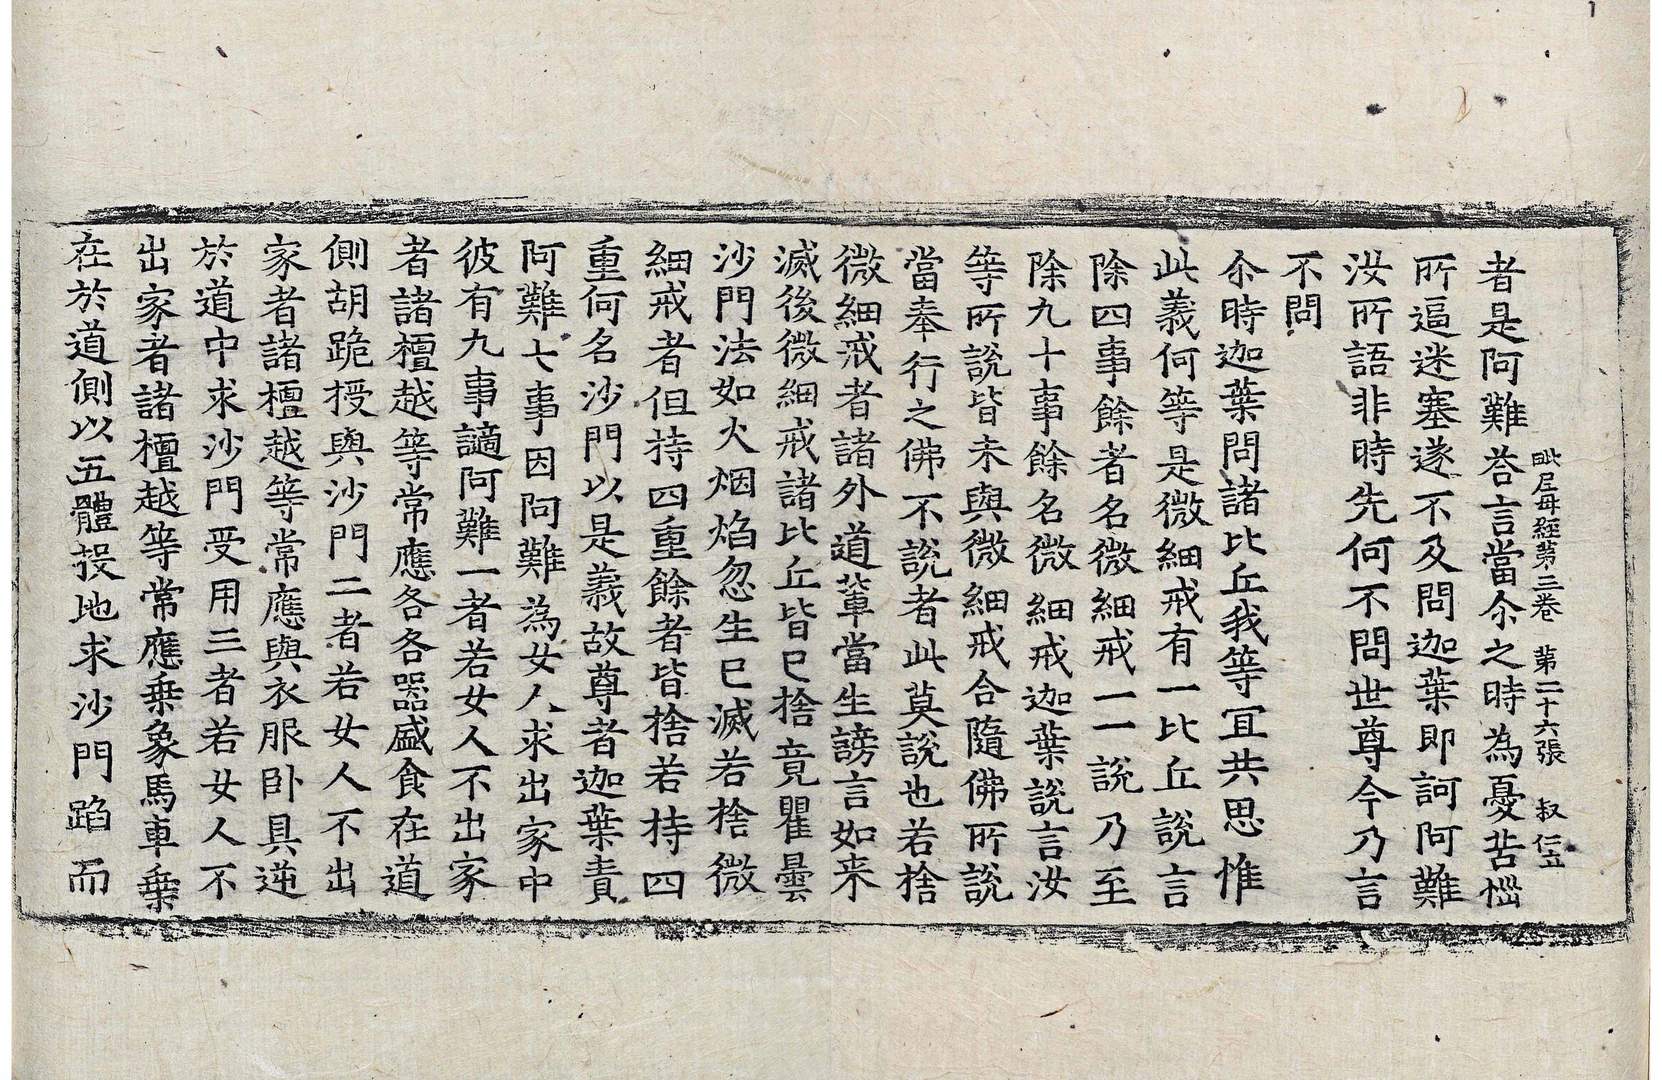 毗尼母經第三卷　第二十六張　叔仁五
者是阿難荅言當尒之時為憂苦惱
所逼迷塞遂不及問迦葉即訶阿難
汝所語非時先何不問世尊今乃言
不問
尒時迦葉問諸比丘我等宜共思惟
此義何等是微細戒有一比丘說言
除四事餘者名微細戒一一說乃至
除九十事餘名微細戒迦葉說言汝
等所說皆未與微細戒合隨佛所說
當奉行之佛不說者此莫說也若捨
微細戒者諸外道軰當生謗言如来
滅後微細戒諸比丘皆已捨竟瞿曇
沙門法如火烟焰忽生已滅若捨微
細戒者但持四重餘者皆捨若持四
重何名沙門以是義故尊者迦葉責
阿難七事因阿難為女人求出家中
彼有九事讁阿難一者若女人不出家
者諸檀越等常應各各器盛食在道
側胡跪授與沙門二者若女人不出
家者諸檀越等常應與衣服卧具逆
於道中求沙門受用三者若女人不
出家者諸檀越等常應乗象馬車乗
在於道側以五體投地求沙門蹈而